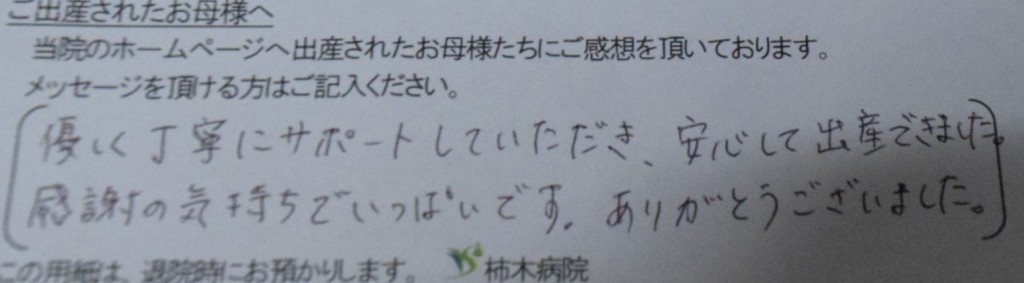 ご出産されたお母様へ
当院のホームページへ出産されたお母様たちにご感想を頂いております。
メッセージを頂ける方はご記入ください。
優しく丁寧にサポートしていただき、安心して出産できました。
感謝の気持ちでいっぱいです。ありがとうございました。
この用紙は、退院時にお預かりします。 柿木病院